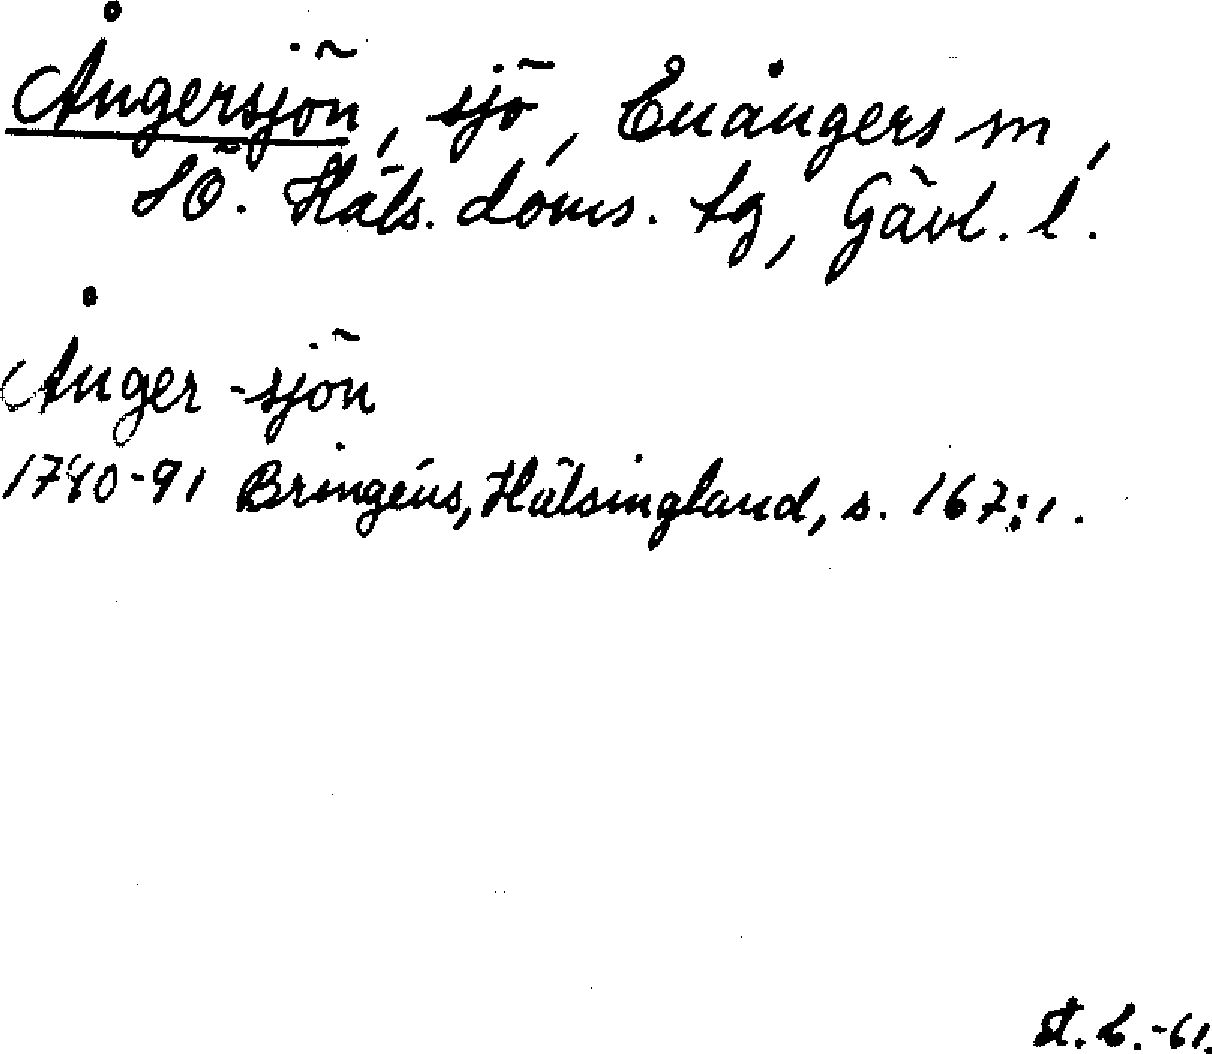 Ångersjön, sjö, Enångers sn,
SÖ. Häls. doms. tg, Gävl. l.
Ånger-sjön
1780-91 Bringéus, Hälsingland, s. 167:1.
-61.